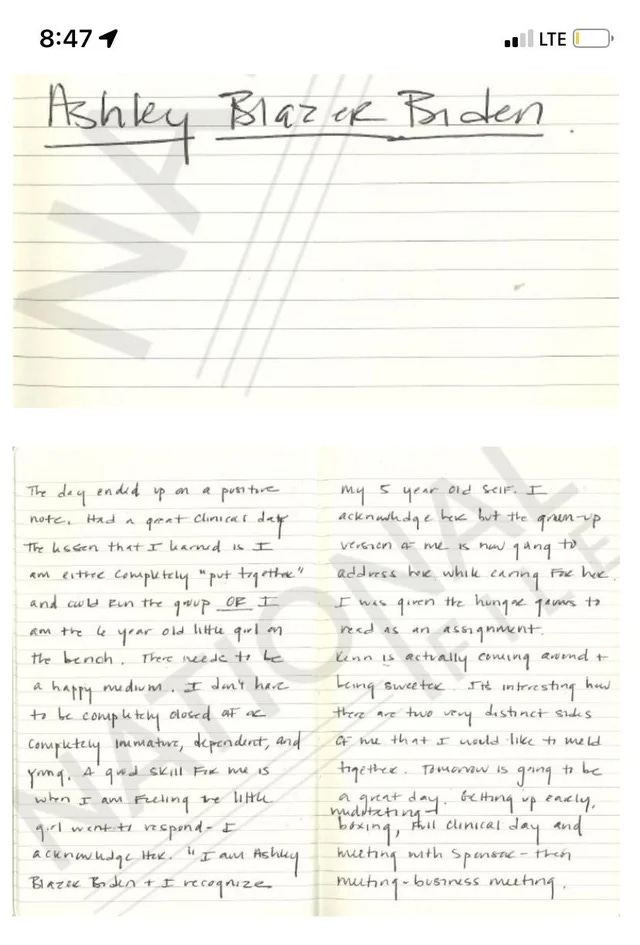 8:47
LTE
Ashley Blazer Biden.
The day ended up on a positive
note. Had a great clinical day
The lesson that I learned is I
am either completely "put together"
and could run the group OR I
am the 6 year old little girl on
the bench. There needs to be
a happy medium. I don't have
to be completely closed off or
completely immature, dependent, and
young. A good skill for me is
when I am feeling the little
girl want to respond - I
acknowledge her. "I am Ashley
Blazer Biden + I recognize
my 5 year old self. I
acknowledge her but the grown-up
version of me is now going to
address her while caring for her.
I was given the hunger games to
read as an assignment.
is actually coming around +
being sweeter. Its interesting how
there are two very distinct sides
of me that I would like to meld
together. Tomorrow is going to be
a great day. Getting up early,
meditating
boxing, full clinical day and
meeting with sponsor - then
meeting - business meeting.
NATIONAL
FILE